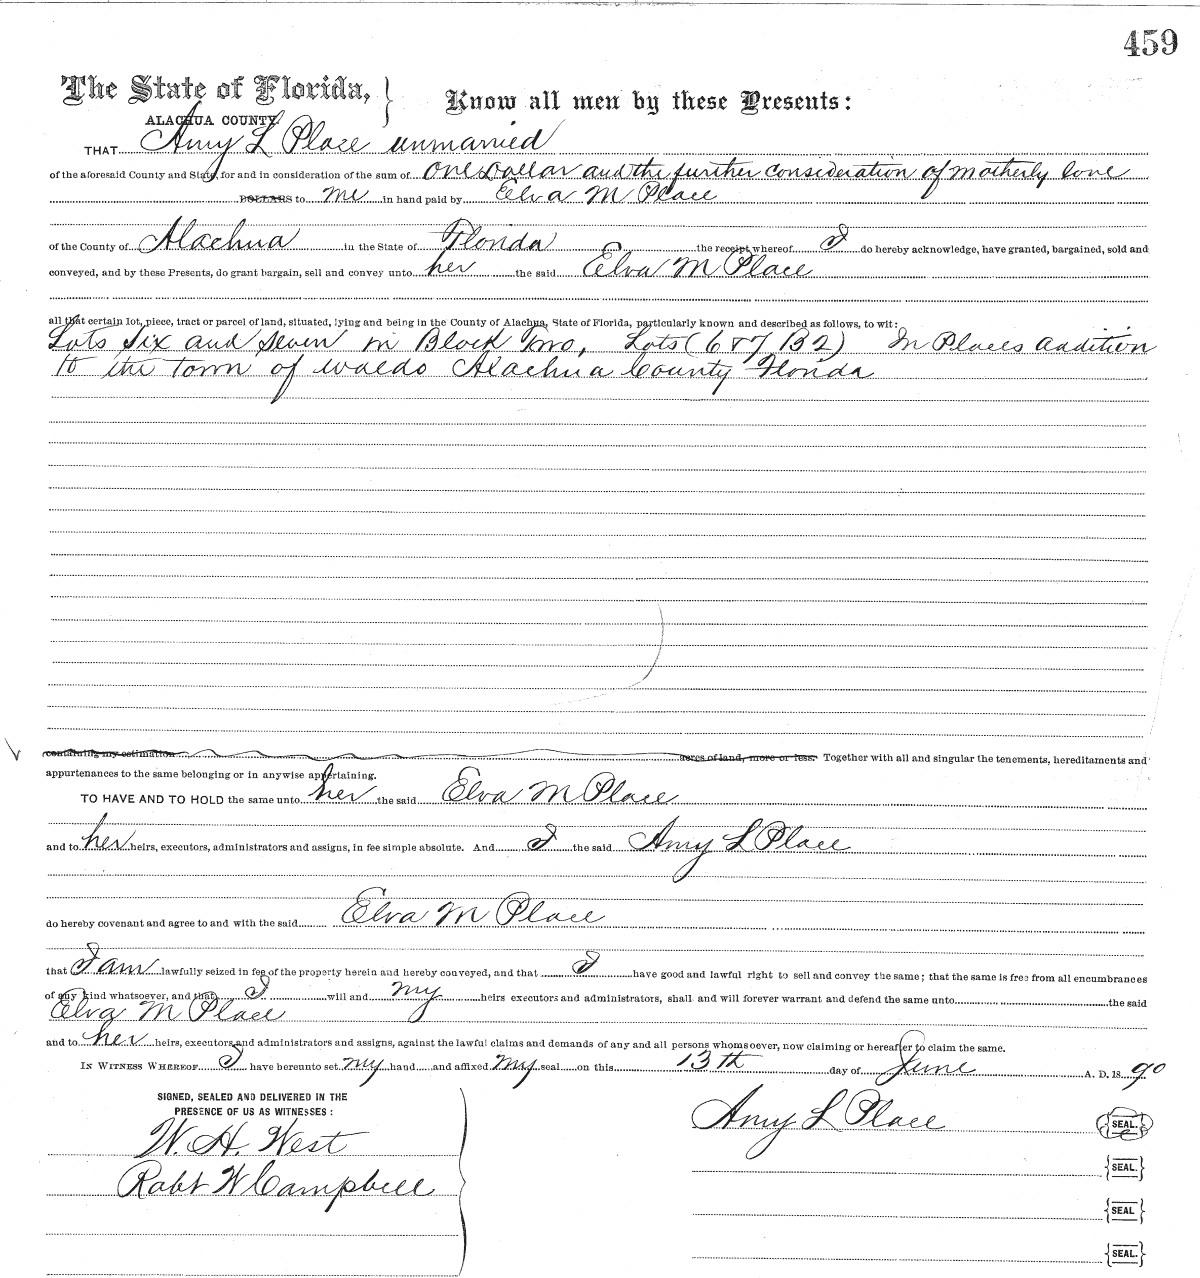 459
The State of Florida, } Know all men by these Presents:
ALACHUA COUNTY.
THAT Amy L Place unmarried
of the aforesaid County and State, for and in consideration of the sum of One Dollar and the further consideration of motherly love
DOLLARS to me in hand paid by Elva M Place
of the County of Alachua in the State of Florida the receipt whereof I do hereby acknowledge, have granted, bargained, sold and
conveyed, and by these Presents, do grant bargain, sell and convey unto her the said Elva M Place
all that certain lot, piece, tract or parcel of land, situated, lying and being in the County of Alachua, State of Florida, particularly known and described as follows, to wit:
Lots Six and Seven in Block Two, Lots (6 & 7 B 2) In Places addition
to the town of Waldo Alachua County Florida
containing my estimation acres of land, more or less. Together with all and singular the tenements, hereditaments and
appurtenances to the same belonging or in anywise appertaining.
TO HAVE AND TO HOLD the same unto her the said Elva M Place
and to her heirs, executors, administrators and assigns, in fee simple absolute. And I the said Amy L Place
do hereby covenant and agree to and with the said Elva M Place
that I am lawfully seized in fee of the property herein and hereby conveyed, and that I have good and lawful right to sell and convey the same; that the same is free from all encumbrances
of any kind whatsoever, and that I will and my heirs executors and administrators, shall and will forever warrant and defend the same unto the said
Elva M Place
and to her heirs, executors and administrators and assigns, against the lawful claims and demands of any and all persons whomsoever, now claiming or hereafter to claim the same.
IN WITNESS WHEREOF I have hereunto set my hand and affixed my seal on this 13th day of June A. D. 18 90
SIGNED, SEALED AND DELIVERED IN THE
PRESENCE OF US AS WITNESSES:
W. H. West
Robt W Campbell
Amy L Place {SEAL.}
{SEAL.}
{SEAL}
{SEAL.}